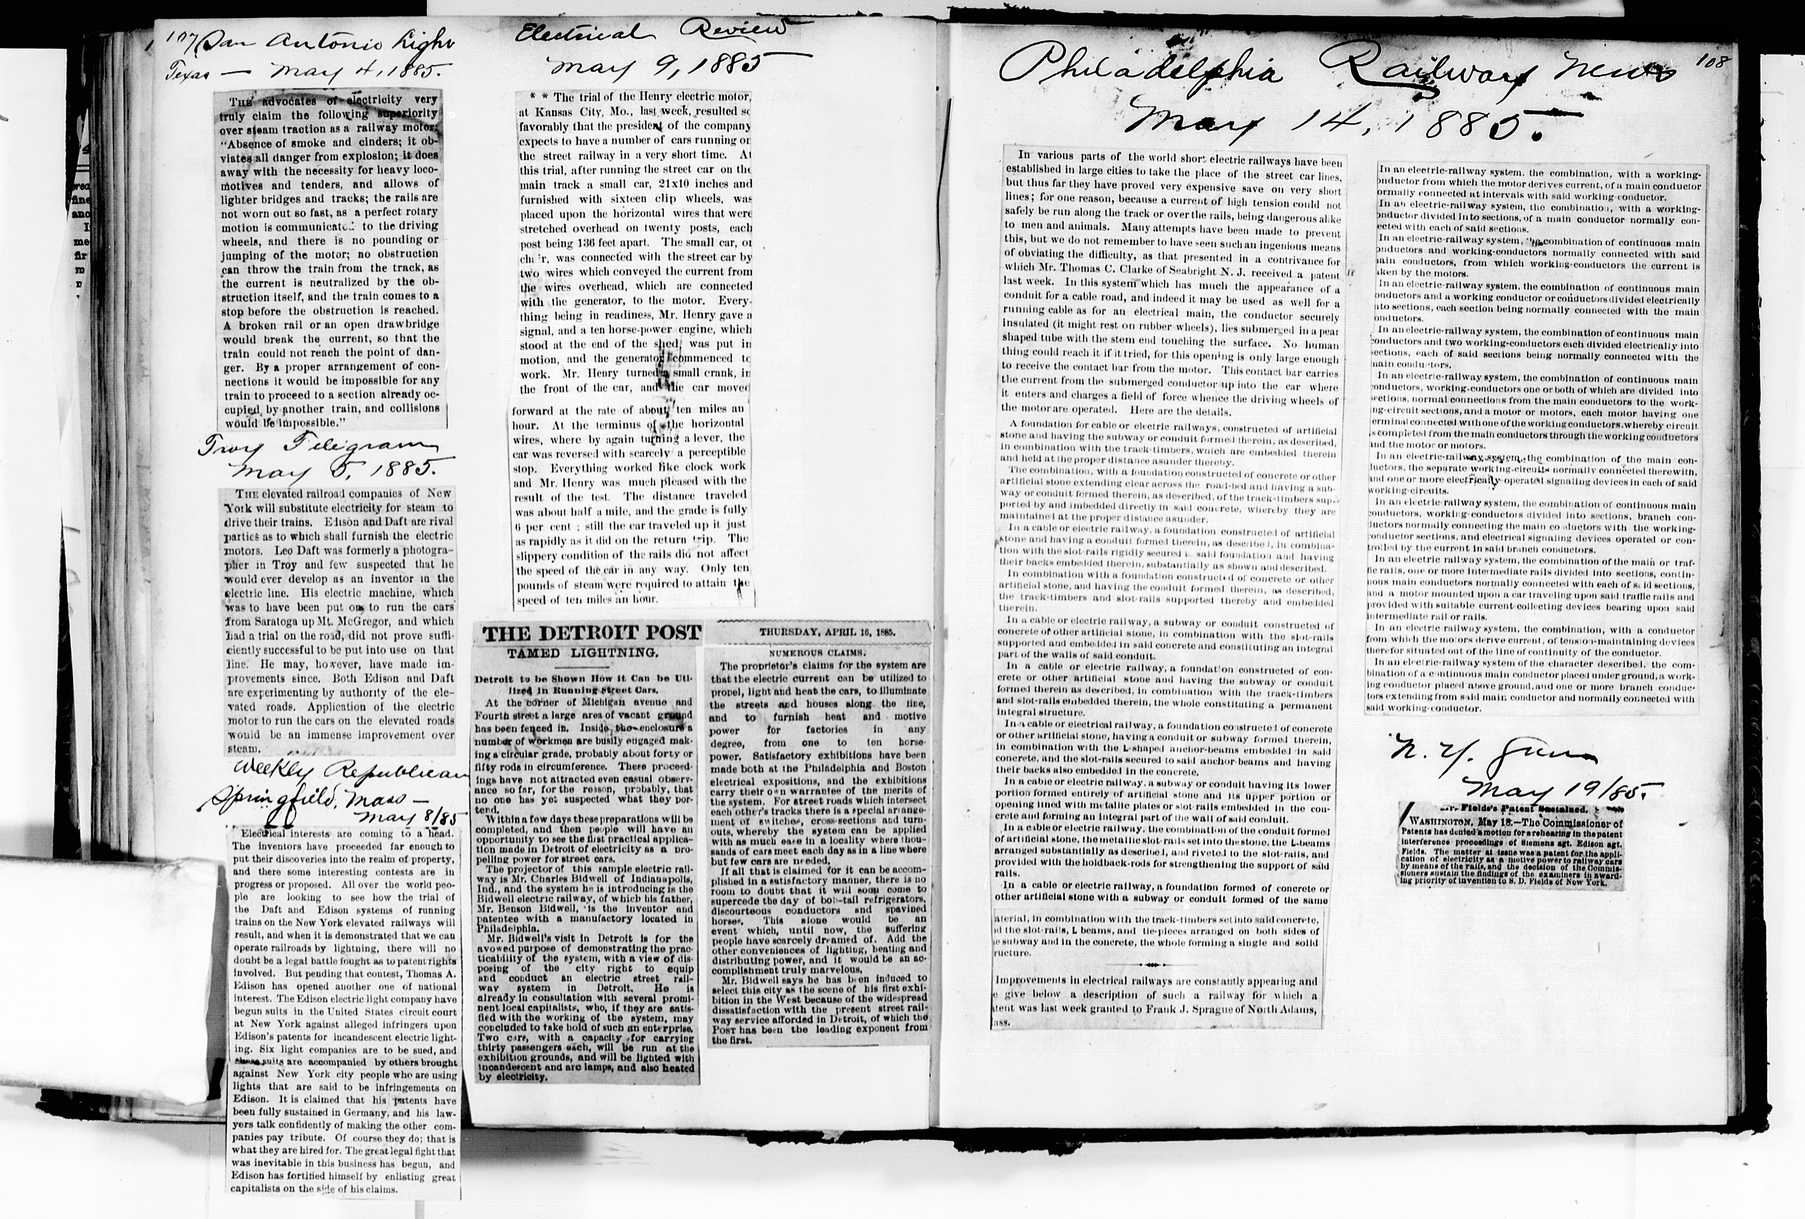 107
San Antonio Light
Texas — May 4, 1885.
THE advocates of electricity very
truly claim the following superiority
over steam traction as a railway motor:
"Absence of smoke and cinders; it ob-
viates all danger from explosion; it does
away with the necessity for heavy loco-
motives and tenders, and allows of
lighter bridges and tracks; the rails are
not worn out so fast, as a perfect rotary
motion is communicated to the driving
wheels, and there is no pounding or
jumping of the motor; no obstruction
can throw the train from the track, as
the current is neutralized by the ob-
struction itself, and the train comes to a
stop before the obstruction is reached.
A broken rail or an open drawbridge
would break the current, so that the
train could not reach the point of dan-
ger. By a proper arrangement of con-
nections it would be impossible for any
train to proceed to a section already oc-
cupied by another train, and collisions
would be impossible."
Troy Telegram
May 5, 1885.
THE elevated railroad companies of New
York will substitute electricity for steam to
drive their trains. Edison and Daft are rival
parties as to which shall furnish the electric
motors. Leo Daft was formerly a photogra-
pher in Troy and few suspected that he
would ever develop as an inventor in the
electric line. His electric machine, which
was to have been put on to run the cars
from Saratoga up Mt. McGregor, and which
had a trial on the road, did not prove suffi-
ciently successful to be put into use on that
line. He may, however, have made im-
provements since. Both Edison and Daft
are experimenting by authority of the ele-
vated roads. Application of the electric
motor to run the cars on the elevated roads
would be an immense improvement over
steam.
Weekly Republican
Springfield, Mass —
May 8/85
Electrical interests are coming to a head.
The inventors have proceeded far enough to
put their discoveries into the realm of property,
and there some interesting contests are in
progress or proposed. All over the world peo-
ple are looking to see how the trial of
the Daft and Edison systems of running
trains on the New York elevated railways will
result, and when it is demonstrated that we can
operate railroads by lightning, there will no
doubt be a legal battle fought as to patent rights
involved. But pending that contest, Thomas A.
Edison has opened another one of national
interest. The Edison electric light company have
begun suits in the United States circuit court
at New York against alleged infringers upon
Edison's patents for incandescent electric light-
ing. Six light companies are to be sued, and
these suits are accompanied by others brought
against New York city people who are using
lights that are said to be infringements on
Edison. It is claimed that his patents have
been fully sustained in Germany, and his law-
yers talk confidently of making the other com-
panies pay tribute. Of course they do; that is
what they are hired for. The great legal fight that
was inevitable in this business has begun, and
Edison has fortified himself by enlisting great
capitalists on the side of his claims.
Electrical Review
May 9, 1885
* * The trial of the Henry electric motor,
at Kansas City, Mo., last week, resulted so
favorably that the president of the company
expects to have a number of cars running on
the street railway in a very short time. At
this trial, after running the street car on the
main track a small car, 21x10 inches and
furnished with sixteen clip wheels, was
placed upon the horizontal wires that were
stretched overhead on twenty posts, each
post being 136 feet apart. The small car, or
was connected with the street car by
two wires which conveyed the current from
the wires overhead, which are connected
with the generator, to the motor. Every-
thing being in readiness, Mr. Henry gave a
signal, and a ten horse-power engine, which
stood at the end of the shed, was put in
motion, and the generator commenced to
work. Mr. Henry turned a small crank, in
the front of the car, and the car moved
forward at the rate of about ten miles an
hour. At the terminus of the horizontal
wires, where by again turning a lever, the
car was reversed with scarcely a perceptible
stop. Everything worked like clock work
and Mr. Henry was much pleased with the
result of the test. The distance traveled
was about half a mile, and the grade is fully
6 per cent ; still the car traveled up it just
as rapidly as it did on the return trip. The
slippery condition of the rails did not affect
the speed of the car in any way. Only ten
pounds of steam were required to attain the
speed of ten miles an hour.
THE DETROIT POST
TAMED LIGHTNING.
Detroit to be Shown How it Can be Uti-
lized in Running Street Cars.
At the corner of Michigan avenue and
Fourth street a large area of vacant ground
has been fenced in. Inside the enclosure a
number of workmen are busily engaged mak-
ing a circular grade, probably about forty or
fifty rods in circumference. These proceed-
ings have not attracted even casual observ-
ance so far, for the reason, probably, that
no one has yet suspected what they por-
tend.
Within a few days these preparations will be
completed, and then people will have an
opportunity to see the first practical applica-
tion made in Detroit of electricity as a pro-
pelling power for street cars.
The projector of this sample electric rail-
way is Mr. Charles Bidwell of Indianapolis,
Ind., and the system he is introducing is the
Bidwell electric railway, of which his father,
Mr. Benson Bidwell, is the inventor and
patentee with a manufactory located in
Philadelphia.
Mr. Bidwell's visit in Detroit is for the
avowed purpose of demonstrating the prac-
ticability of the system, with a view of dis-
posing of the city right to equip
and conduct an electric street rail-
way system in Detroit. He is
already in consultation with several promi-
nent local capitalists, who, if they are satis-
fied with the working of the system, may
concluded to take hold of such an enterprise.
Two cars, with a capacity for carrying
thirty passengers each, will be run at the
exhibition grounds, and will be lighted with
incandescent and arc lamps, and also heated
by electricity.
THURSDAY, APRIL 16, 1885.
NUMEROUS CLAIMS.
The proprietor's claims for the system are
that the electric current can be utilized to
propel, light and heat the cars, to illuminate
the streets and houses along the line,
and to furnish heat and motive
power for factories in any
degree, from one to ten horse-
power. Satisfactory exhibitions have been
made both at the Philadelphia and Boston
electrical expositions, and the exhibitions
carry their own warrantee of the merits of
the system. For street roads which intersect
each other's tracks there is a special arrange-
ment of switches, cross-sections and turn-
outs, whereby the system can be applied
with as much ease in a locality where thou-
sands of cars meet each day as in a line where
but few cars are needed.
If all that is claimed for it can be accom-
plished in a satisfactory manner, there is no
room to doubt that it will soon come to
supercede the day of bob-tail refrigerators,
discourteous conductors and spavined
horses. This alone would be an
event which, until now, the suffering
people have scarcely dreamed of. Add the
other conveniences of lighting, heating and
distributing power, and it would be an ac-
complishment truly marvelous.
Mr. Bidwell says he has been induced to
select this city as the scene of his first exhi-
bition in the West because of the widespread
dissatisfaction with the present street rail-
way service afforded in Detroit, of which the
POST has been the leading exponent from
the first.
Philadelphia Railway News
108
May 14, 1885.
In various parts of the world short electric railways have been
established in large cities to take the place of the street car lines,
but thus far they have proved very expensive save on very short
lines; for one reason, because a current of high tension could not
safely be run along the track or over the rails, being dangerous alike
to men and animals. Many attempts have been made to prevent
this, but we do not remember to have seen such an ingenious means
of obviating the difficulty, as that presented in a contrivance for
which Mr. Thomas C. Clarke of Seabright N. J. received a patent
last week. In this system which has much the appearance of a
conduit for a cable road, and indeed it may be used as well for a
running cable as for an electrical main, the conductor securely
insulated (it might rest on rubber wheels), lies submerged in a pear
shaped tube with the stem end touching the surface. No human
thing could reach it if it tried, for this opening is only large enough
to receive the contact bar from the motor. This contact bar carries
the current from the submerged conductor up into the car where
it enters and charges a field of force whence the driving wheels of
the motor are operated. Here are the details.
A foundation for cable or electric railways, constructed of artificial
stone and having the subway or conduit formed therein, as described,
in combination with the track-timbers, which are embedded therein
and held at the proper distance asunder thereby.
The combination, with a foundation constructed of concrete or other
artificial stone extending clear across the road-bed and having a sub-
way or conduit formed therein, as described, of the track-timbers sup-
ported by and imbedded directly in said concrete, whereby they are
maintained at the proper distance asunder.
In a cable or electric railway, a foundation constructed of artificial
stone and having a conduit formed therein, as described, in combina-
tion with the slot-rails rigidly secured to said foundation and having
their backs embedded therein, substantially as shown and described.
In combination with a foundation constructed of concrete or other
artificial stone, and having the conduit formed therein, as described,
the track-timbers and slot-rails supported thereby and embedded
therein.
In a cable or electric railway, a subway or conduit constructed of
concrete of other artificial stone, in combination with the slot-rails
supported and embedded in said concrete and constituting an integral
part of the walls of said conduit.
In a cable or electric railway, a foundation constructed of con-
crete or other artificial stone and having the subway or conduit
formed therein as described, in combination with the track-timbers
and slot-rails embedded therein, the whole constituting a permanent
integral structure.
In a cable or electrical railway, a foundation constructed of concrete
or other artificial stone, having a conduit or subway formed therein,
in combination with the L-shaped anchor-beams embedded in said
concrete, and the slot-rails secured to said anchor-beams and having
their backs also embedded in the concrete.
In a cable or electric railway, a subway or conduit having its lower
portion formed entirely of artificial stone and its upper portion or
opening lined with metallic plates or slot-rails embedded in the con-
crete and forming an integral part of the wall of said conduit.
In a cable or electric railway, the combination of the conduit formed
of artificial stone, the metallic slot-rails set into the stone, the L-beams
arranged substantially as described, and riveted to the slot-rails, and
provided with the holdback-rods for strengthening the support of said
rails.
In a cable or electric railway, a foundation formed of concrete or
other artificial stone with a subway or conduit formed of the same
aterial, in combination with the track-timbers set into said concrete,
d the slot-rails, L beams, and tie-pieces arranged on both sides of
e subway and in the concrete, the whole forming a single and solid
ructure.
Improvements in electrical railways are constantly appearing and
e give below a description of such a railway for which a
tent was last week granted to Frank J. Sprague of North Adams,
ass.
In an electric-railway system, the combination, with a working-
onductor from which the motor derives current, of a main conductor
ormally connected at intervals with said working-conductor.
In an electric-railway system, the combination, with a working-
onductor divided into sections, of a main conductor normally con-
ected with each of said sections.
In an electric-railway system, the combination of continuous main
onductors and working-conductors normally connected with said
ain conductors, from which working-conductors the current is
aken by the motors.
In an electric-railway system, the combination of continuous main
onductors and a working conductor or conductors divided electrically
nto sections, each section being normally connected with the main
onductors.
In an electric-railway system, the combination of continuous main
onductors and two working-conductors each divided electrically into
ections, each of said sections being normally connected with the
main conductors.
In an electric-railway system, the combination of continuous main
onductors, working-conductors one or both of which are divided into
ections, normal connections from the main conductors to the work-
ng-circuit sections, and a motor or motors, each motor having one
erminal connected with one of the working conductors, whereby circuit
is completed from the main conductors through the working conductors
and the motor or motors.
In an electric-railway system, the combination of the main con-
ductors, the separate working-circuits normally connected therewith,
and one or more electrically-operated signaling devices in each of said
working-circuits.
In an electric railway system, the combination of continuous main
conductors, working-conductors divided into sections, branch con-
ductors normally connecting the main conductors with the working-
onductor sections, and electrical signaling devices operated or con-
trolled by the current in said branch conductors.
In an electric railway system, the combination of the main or traf-
fic rails, one or more intermediate rails divided into sections, contin-
uous main conductors normally connected with each of said sections,
and a motor mounted upon a car traveling upon said traffic rails and
provided with suitable current-collecting devices bearing upon said
intermediate rail or rails.
In an electric railway system, the combination, with a conductor
from which the motors derive current, of tension-maintaining devices
therefor situated out of the line of continuity of the conductor.
In an electric-railway system of the character described, the com-
bination of a continuous main conductor placed under ground, a work-
ing conductor placed above ground, and one or more branch conduc-
tors extending from said main conductor and normally connected with
said working-conductor.
N. Y. Sun
May 19/85.
Mr. Fields's Patent Sustained.
WASHINGTON, May 18.—The Commissioner of
Patents has denied a motion for a rehearing in the patent
interference proceedings of Siemens agt. Edison agt.
Fields. The matter at issue was a patent for the appli-
cation of electricity as a motive power to railway cars
by means of the rails, and the decision of the Commis-
sioners sustain the findings of the examiners in award-
ing priority of invention to S. D. Fields of New York.